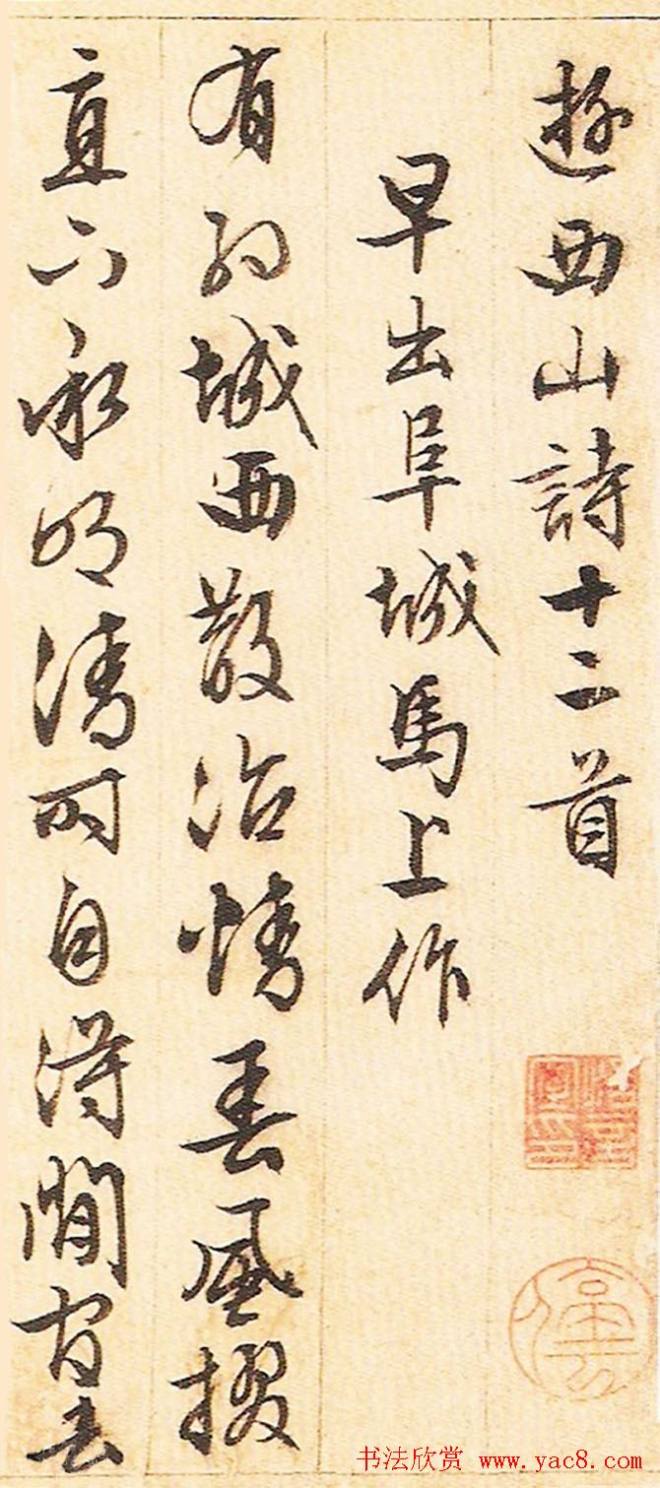 遊西山詩十二首
早出阜城馬上作
有約城西散冶情春風掇
直下承明清時自得閒官去
停雲
书法欣赏 www.yac8.com